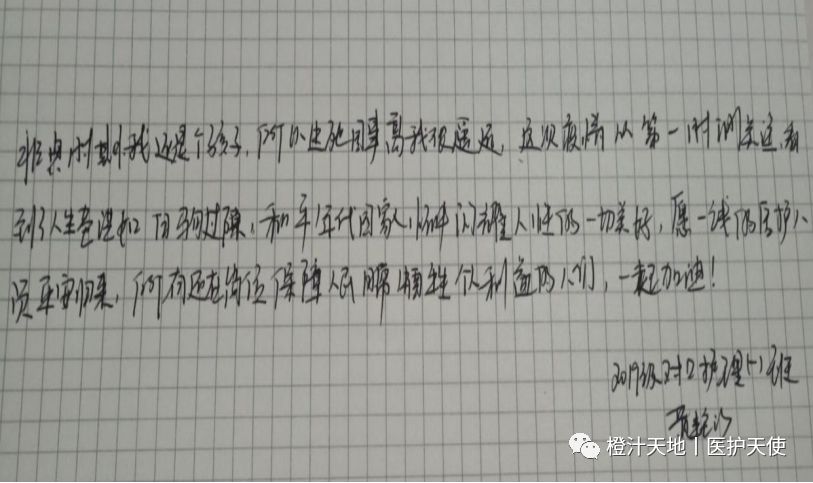 非典时期我还是个孩子,所以生死因事离我很遥远,这次疫情从第一时间关注,看
到了人生苍茫如白驹过隙,和平年代国家情怀闪耀人性的一切美好,愿一线的医护人
员平安归来,所有还在岗位保障人民牺牲个人利益的人们,一起加油!
2019级对口护理(一)班
橙汁天地丨医护天使